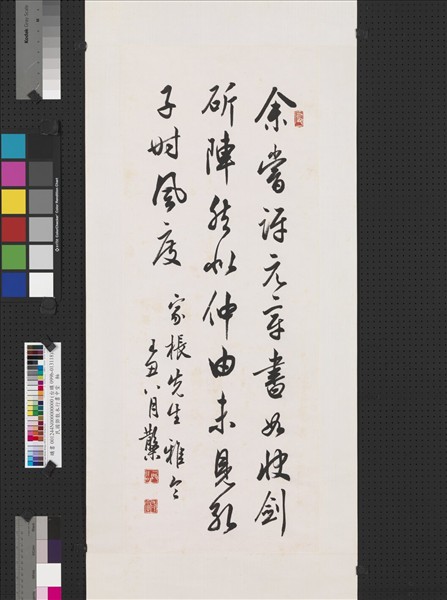 余嘗評元章書如快劍
斫陣然似仲由未見孔
子時風度
家棖先生雅令
丑八月